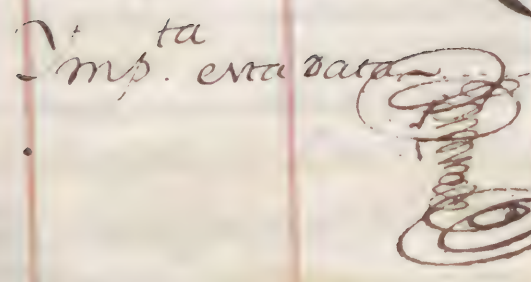 Ymp.ta esta data